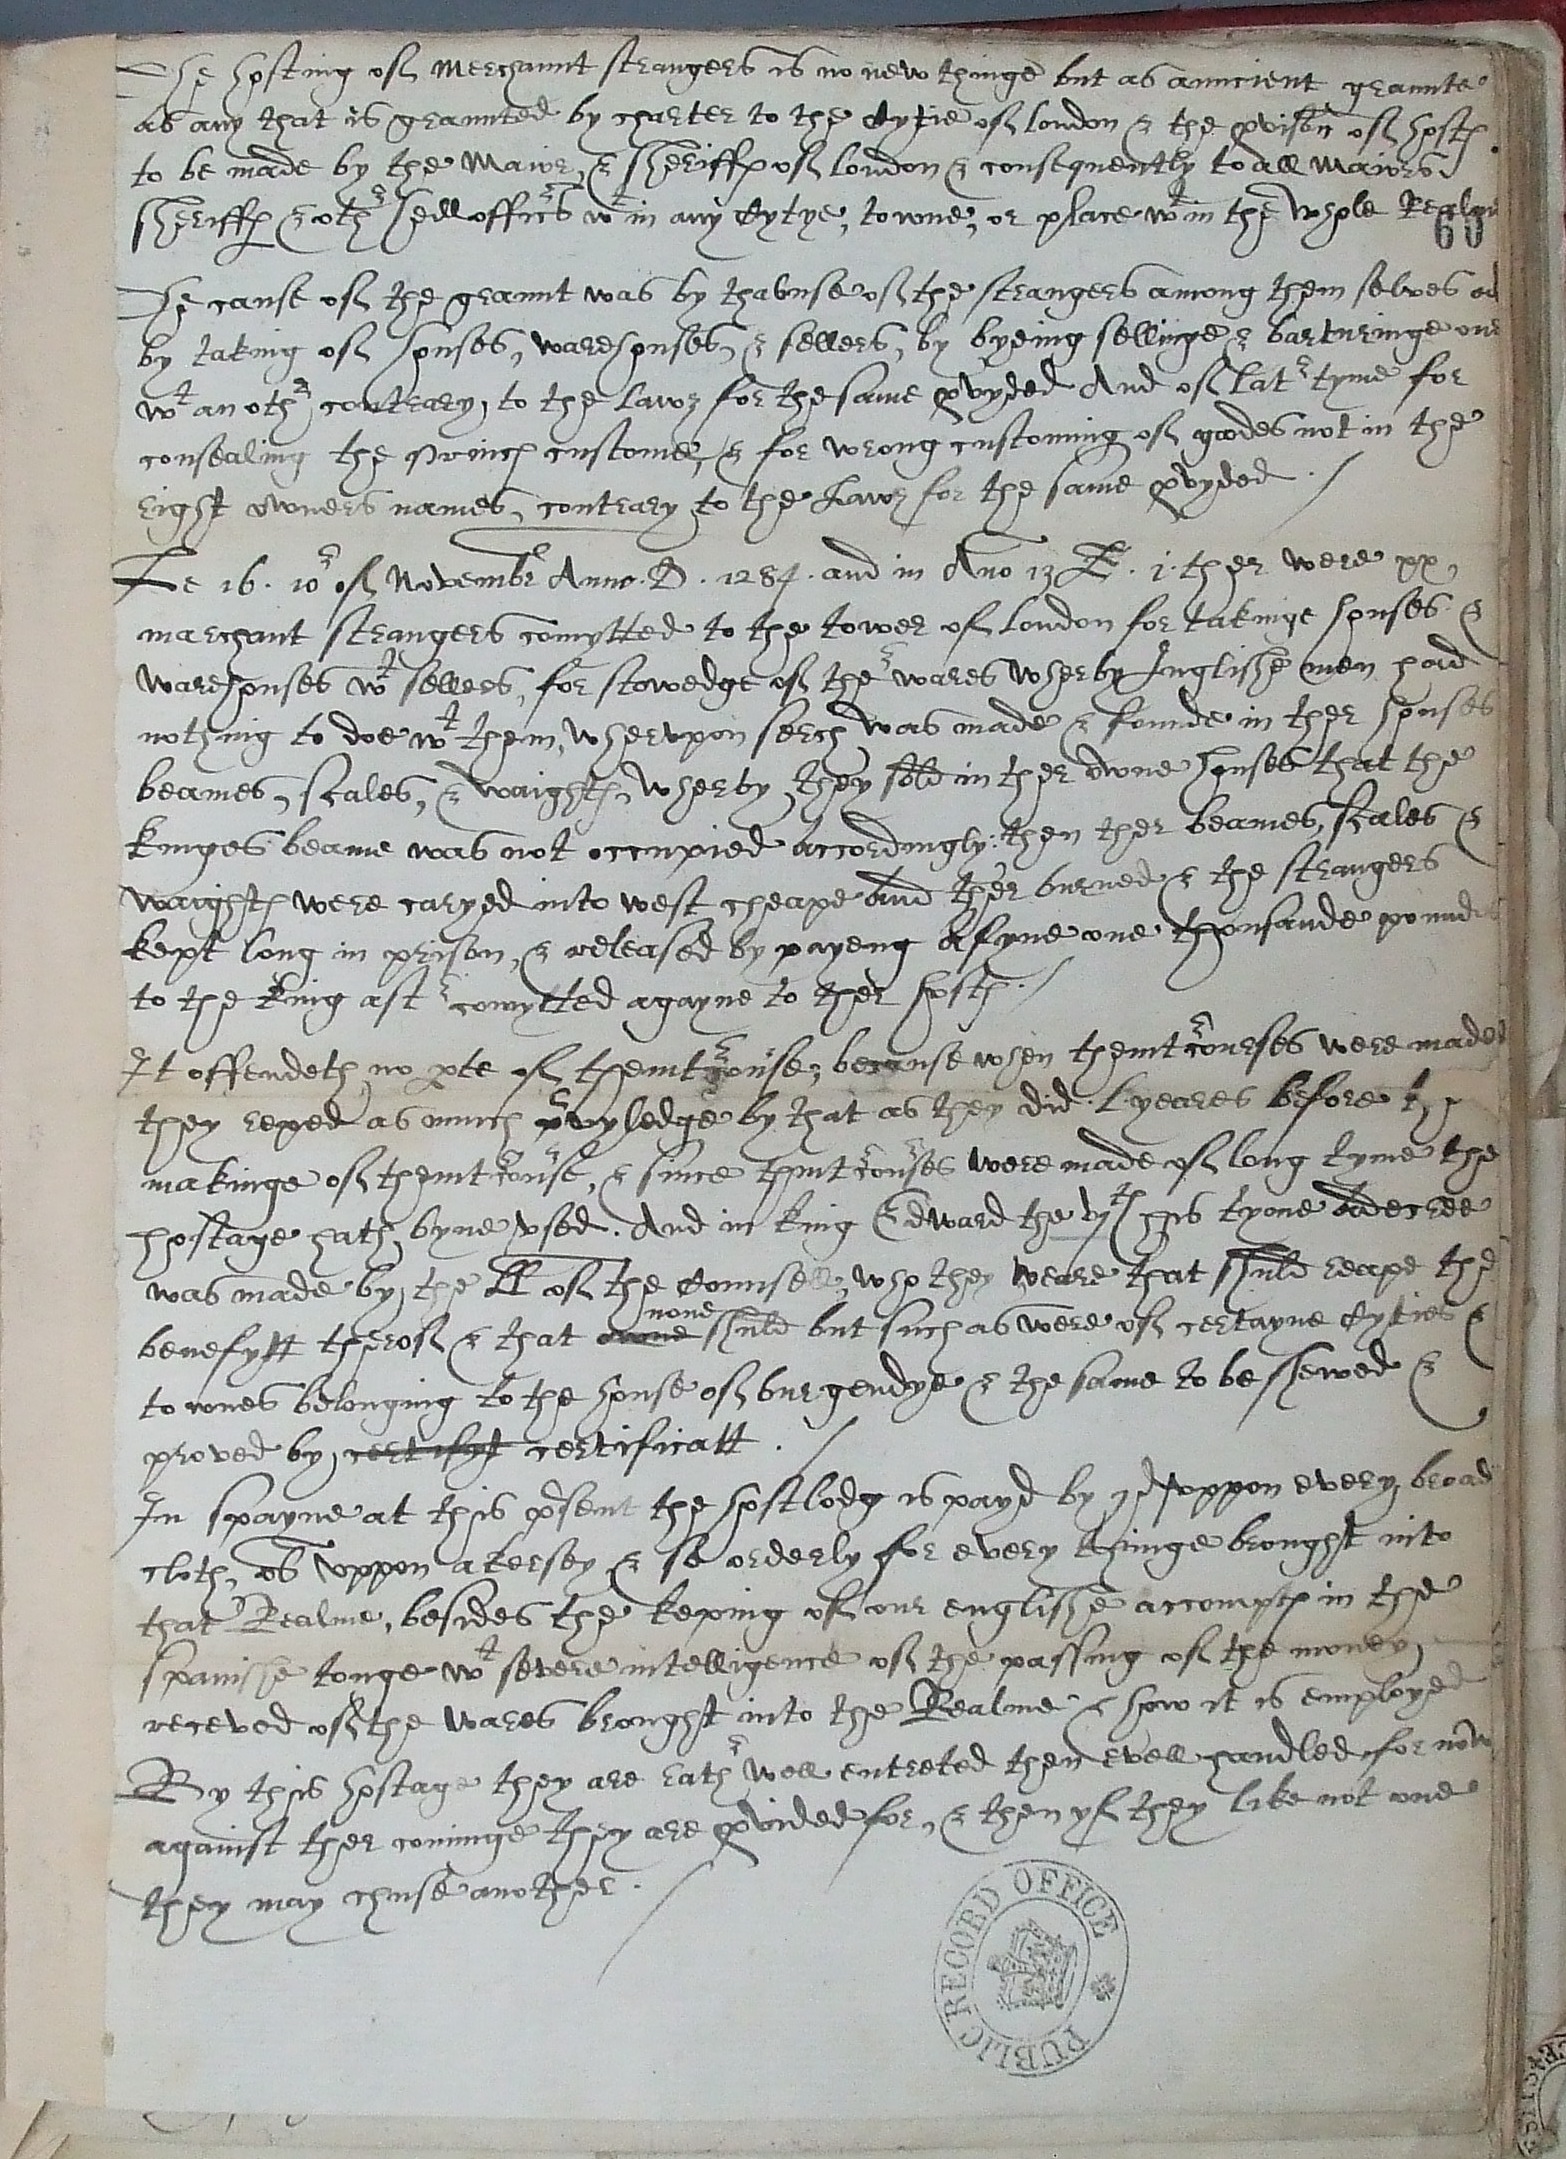 The hosting of Merchaunt strangers is no new thinge but as auncient graunte
as any that is graunted by charter to the Cytie of london & the pvision of hostes
to be made by the Maior, & Sheriffes of london & consequently to all Maiors
Sheriffes & other hedd officrs wt in any Cytye, towne, or place wt in the whole Realme
60
The cause of the graunt was by thabuse of the strangers among them selves
by taking of houses, warehouses, & sellers, by byeing sellinge & barturinge one
wt an other contrary, to the lawes for the same pvyded And of later tyme for
consealing the princes custome, & for wrong customing of goodes not in the
right owners names, contrary to the Lawes for the same pvyded ./
The 16. 10r of Novembr Anno. D. 1284. and in Ano 13 E. 1. ther were xx
marchant strangers comytted to the tower of london for takinge houses &
warehouses wt sellers, for stowedge of ther wares wherby Inglishe men had
nothing to doe wt them, whervpon serch was made & founde in ther houses
beames, scales, & waightes, wherby they sold in ther owne houses that the
kinges beame was not occupied accordingly: then ther beames, scales &
waightes were caryed into west cheape And ther burned & the strangers
kept long in prison, & released by payeng A fyne one thousande poundes
to the king after comytted agayne to ther hostes ./
It offendeth no pte of thentrcourse, because when thentrcourses were made
they reped as much pvyledge by that as they did L yeares before the
makinge of thentrcourse, & since thentrcourses were made of long tyme the
hostage hath byne vsed. And in king Edward the vjth his tyme a decree
was made by the LL of the Counsell, who they weare that shuld reape the
benefytt therof & that none shuld but such as were of certayne Cyties &
townes belonging to the house of burgendye & the same to be shewed &
proved by certifyt certificatt ./
In spayne at this psent the hostlodg is payd by jd vppon every broad
cloth, ob vppon a kersey & so orderly for every thinge brought into
that Realme, besides the keping of our englishe accomptes in the
spanishe tonge wt severe intelligence of the passing of the money
receved of the wares brought into the Realme & how it is employed
By this hostage they are rather well entreted then evell handled for now
against ther cominge they are pvided for, & then yf they like not one
they may chuse another ./
PUBLIC RECORD OFFICE